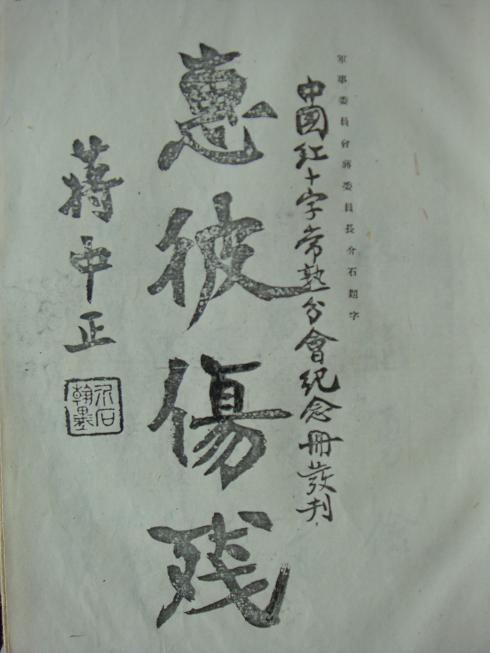 軍事委員會蔣委員長介石題字
中國红十字常熟分會紀念冊發刋
惠彼傷残
蔣中正
介石翰墨